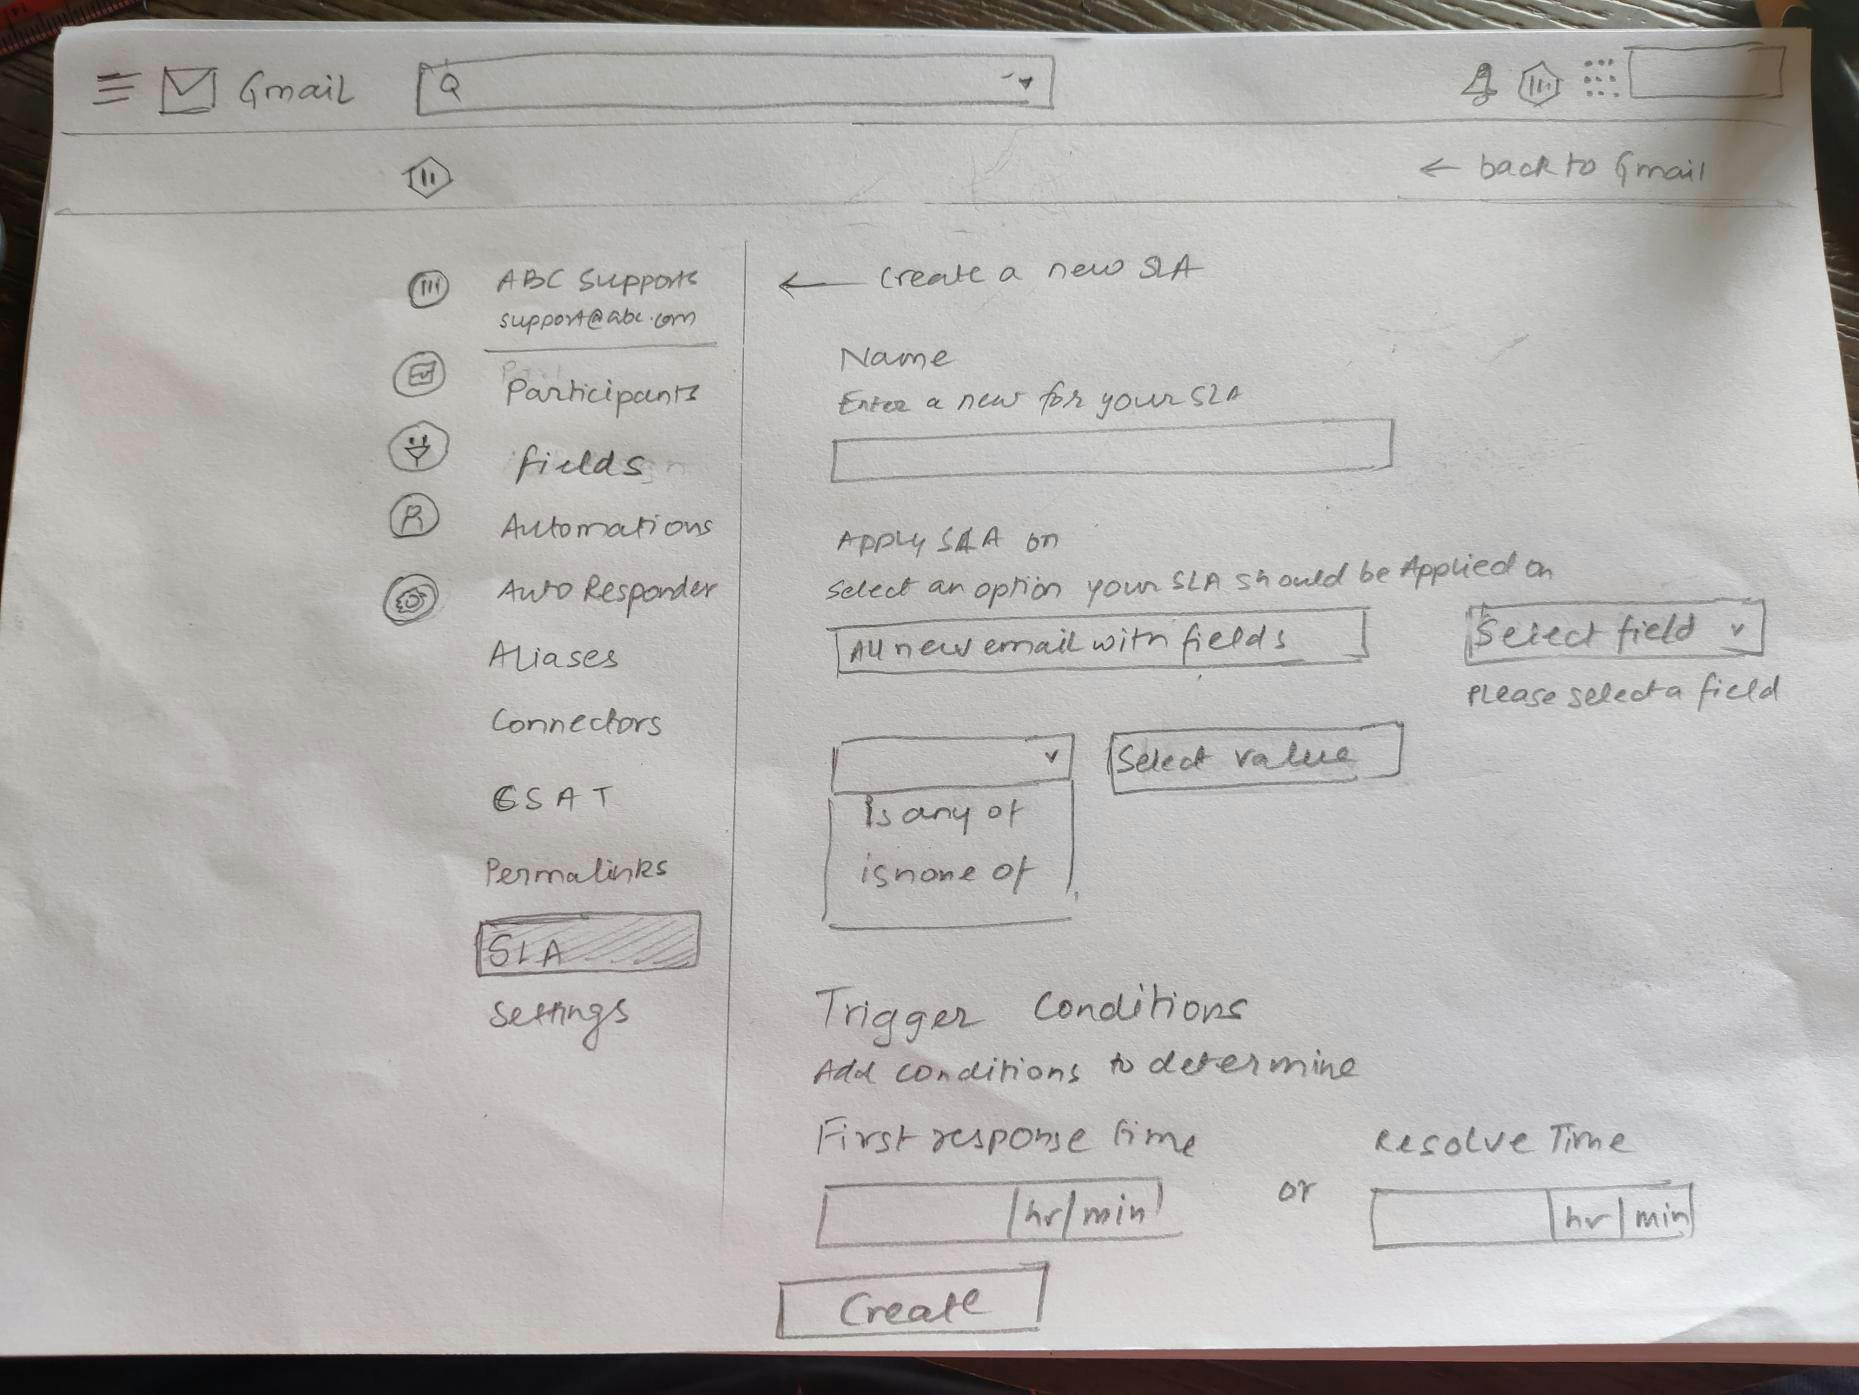 Gmail
← back to Gmail
ABC Supports
support@abc.com
Participants
fields
Automations
Auto Responder
Aliases
Connectors
CSAT
Permalinks
SLA
Settings
← Create a new SLA
Name
Enter a new for your SLA
Apply SLA on
Select an option your SLA should be Applied on
All new email with fields
Select field
Please select a field
Select value
Is any of
is none of
Trigger Conditions
Add conditions to determine
First response time
Resolve Time
hr/min
or
hr/min
Create